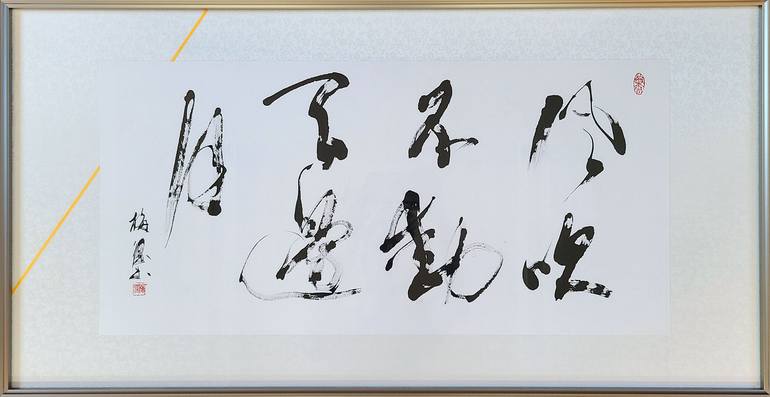 風吹
不動
天邊
月
梅